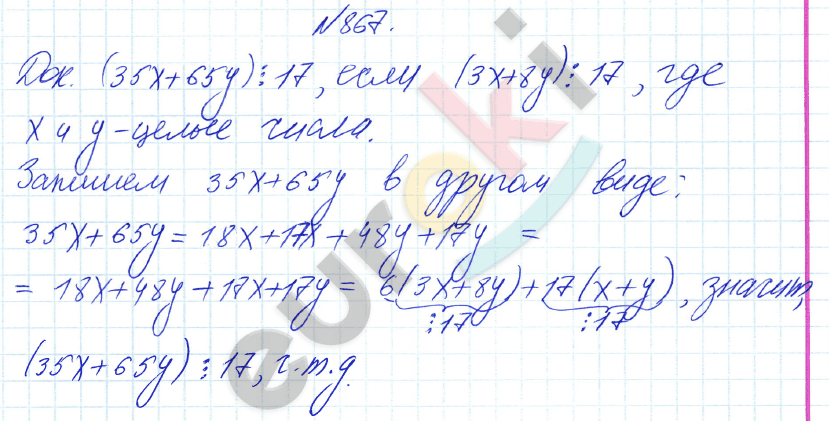 №867.
Док. (35x+65y)⋮17, если (3x+8y)⋮17, где
x и y - целые числа.
Запишем 35x+65y в другом виде:
35x+65y = 18x+17x+48y+17y =
= 18x+48y+17x+17y = 6(3x+8y)+17(x+y), значит,
⋮17 ⋮17
(35x+65y)⋮17, ч.т.д.
euroki